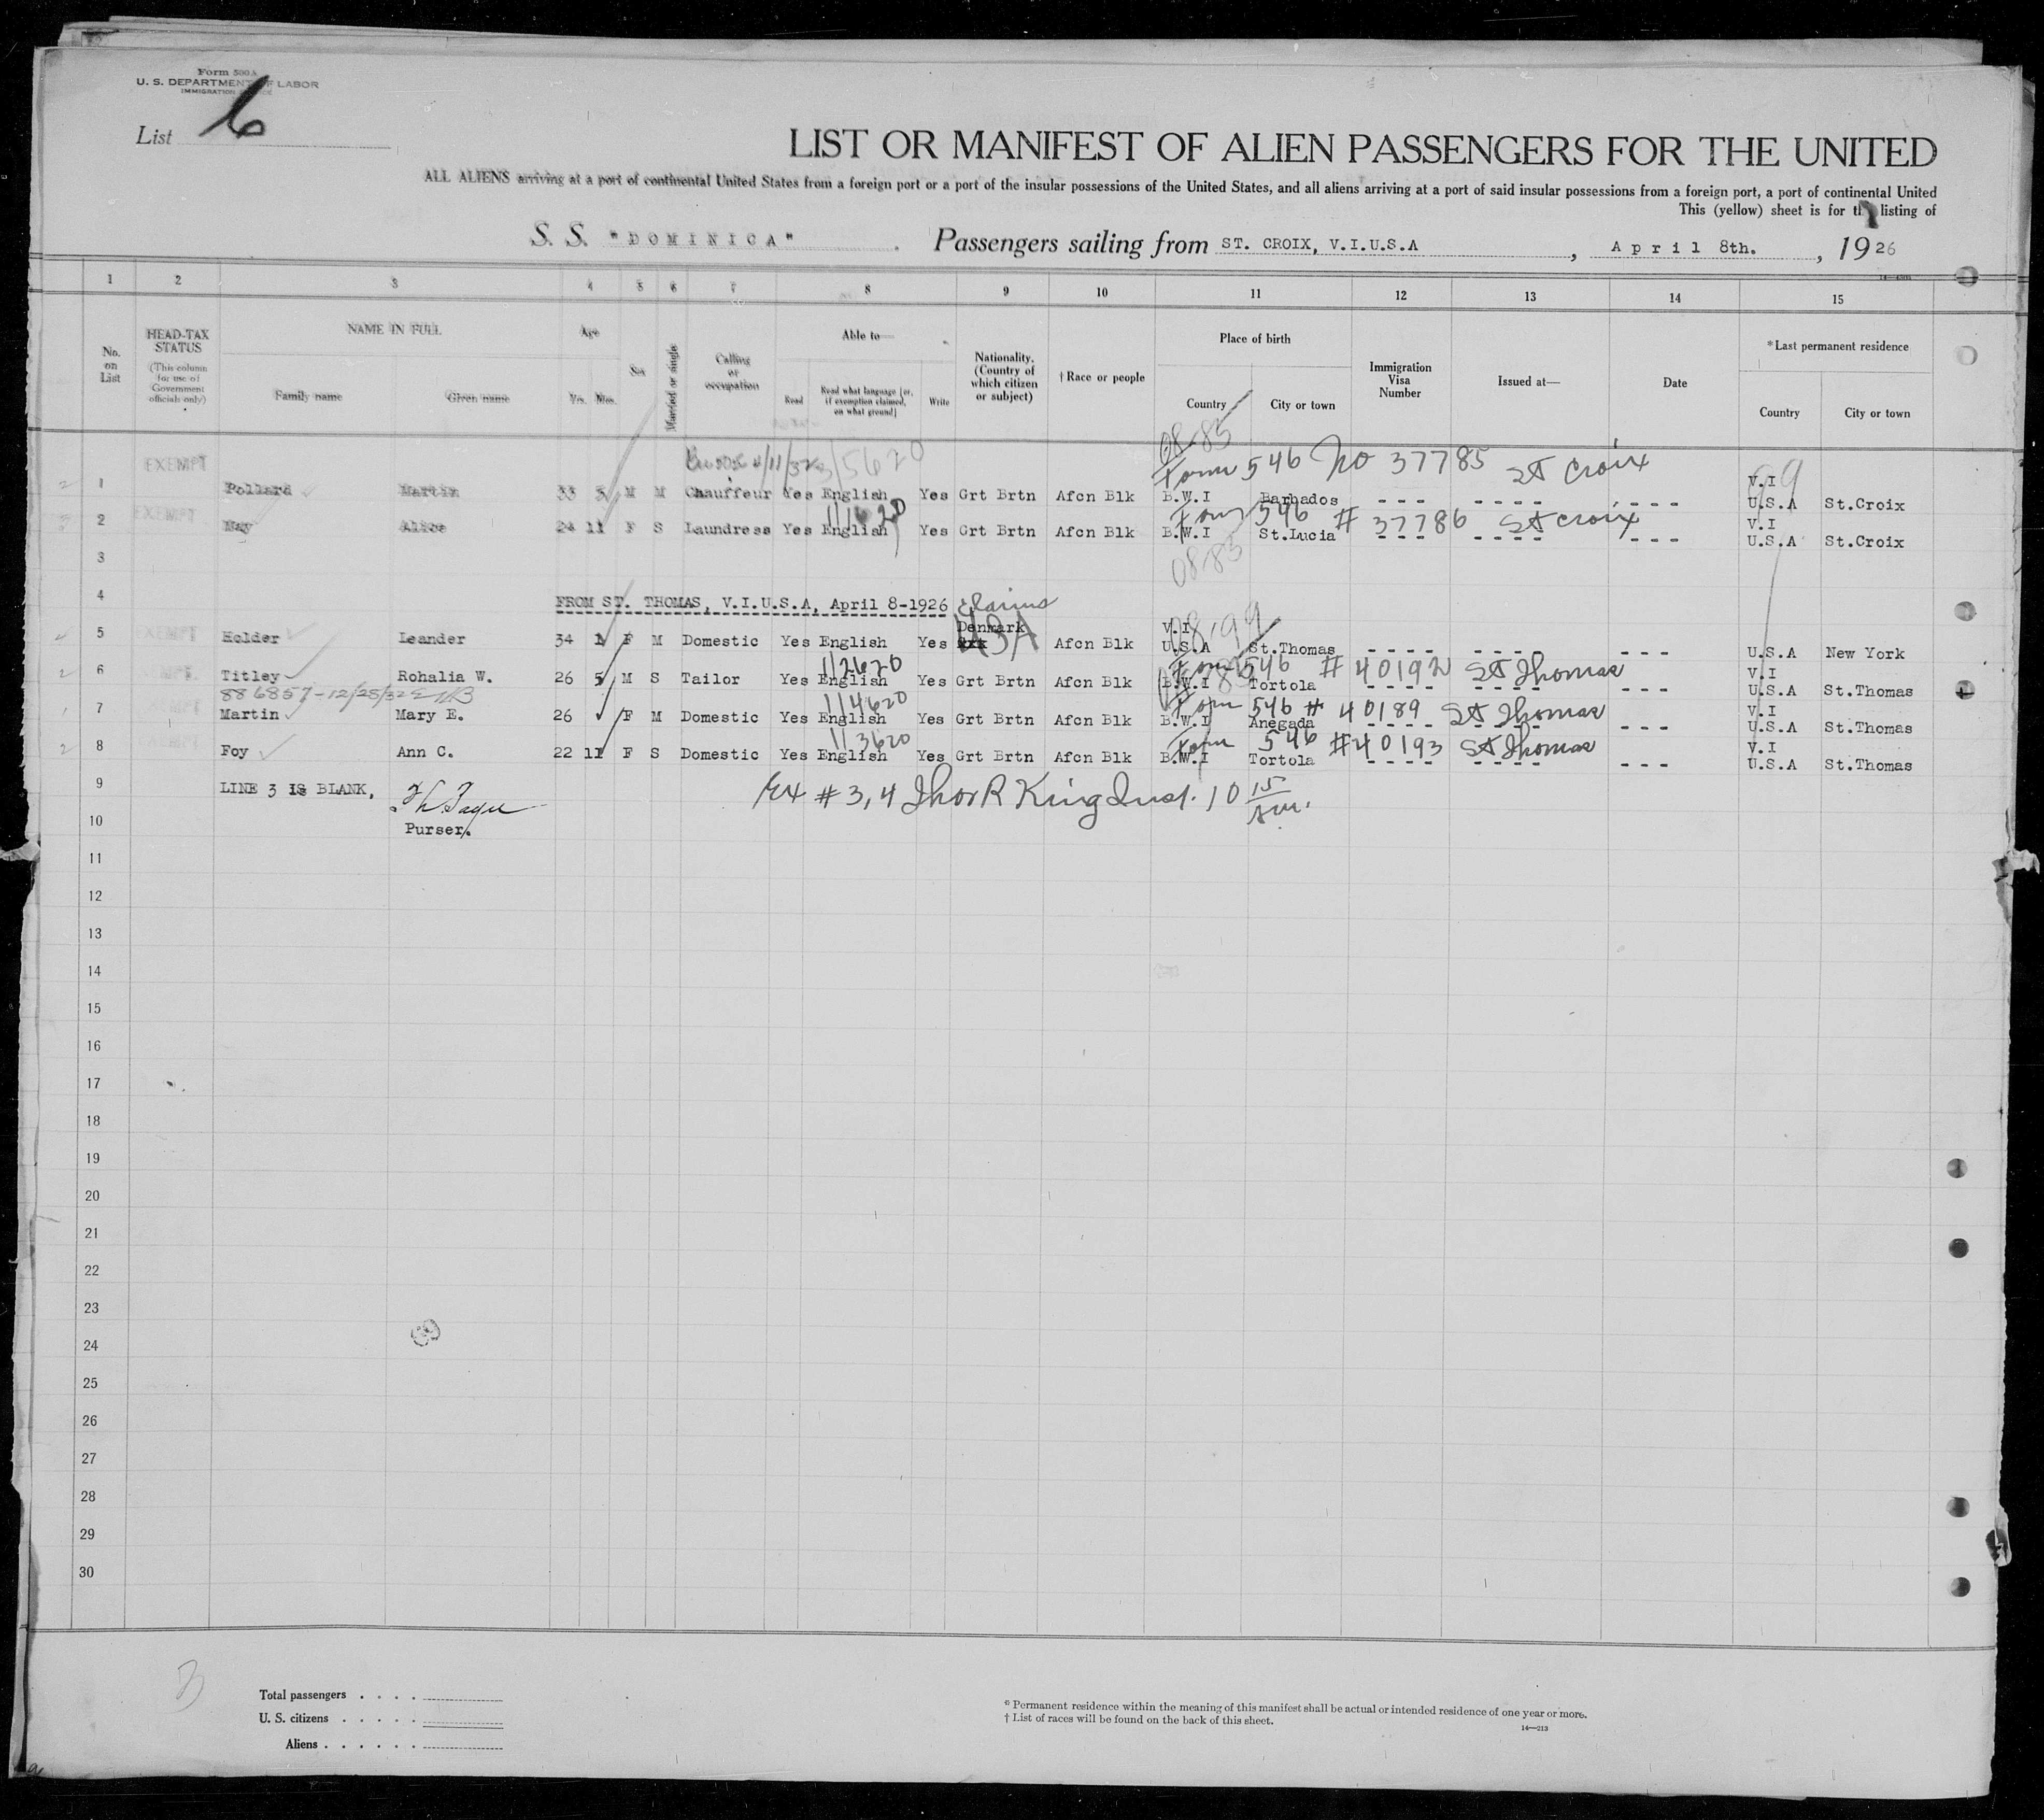 Form 500A
U. S. DEPARTMENT OF LABOR
IMMIGRATION SERVICE
List 6
LIST OR MANIFEST OF ALIEN PASSENGERS FOR THE UNITED
ALL ALIENS arriving at a port of continental United States from a foreign port or a port of the insular possessions of the United States, and all aliens arriving at a port of said insular possessions from a foreign port, a port of continental United
This (yellow) sheet is for the listing of
S. S. "DOMINICA" Passengers sailing from ST. CROIX, V.I.U.S.A , April 8th. , 1926
1 2 3 4 5 6 7 8 9 10 11 12 13 14 15
No. on List
HEAD-TAX STATUS (This column for use of Government officials only)
NAME IN FULL
Family name Given name
Age
Yrs. Mos.
Sex
Married or single
Calling or occupation
Able to—
Read Read what language [or, if exemption claimed, on what ground] Write
Nationality. (Country of which citizen or subject)
†Race or people
Place of birth
Country City or town
Immigration Visa Number
Issued at—
Date
*Last permanent residence
Country City or town
4/11/32 15620 08-85
Form 546 No 37785 St Croix
EXEMPT V.I
1 Pollard Martin 33 3 M M Chauffeur Yes English Yes Grt Brtn Afcn Blk B.W.I Barbados --- ---- ---- U.S.A St.Croix
EXEMPT Form 546 # 37786 St Croix V.I
2 May Alice 24 11 F S Laundress Yes English Yes Grt Brtn Afcn Blk B.W.I St.Lucia --- ---- --- U.S.A St.Croix
3 08-85
4 FROM ST. THOMAS, V.I.U.S.A, April 8-1926 Claims
EXEMPT Denmark V.I 08-99
5 Holder Leander 34 1 F M Domestic Yes English Yes USA Afcn Blk U.S.A St.Thomas ---- ---- --- U.S.A New York
112620 Form 546 # 40192 St Thomas V.I
6 Titley Rohalia W. 26 5 M S Tailor Yes English Yes Grt Brtn Afcn Blk B.W.I Tortola ---- ---- --- U.S.A St.Thomas
886857-12/25/32 114620 Form 546 # 40189 St Thomas V.I
7 Martin Mary E. 26 F M Domestic Yes English Yes Grt Brtn Afcn Blk B.W.I Anegada ---- ---- --- U.S.A St.Thomas
EXEMPT 113620 Form 546 #40193 St Thomas V.I
8 Foy Ann C. 22 11 F S Domestic Yes English Yes Grt Brtn Afcn Blk B.W.I Tortola ---- ---- --- U.S.A St.Thomas
9 LINE 3 IS BLANK, Ex # 3, 4 Thos R King Insp. 10 15 am.
10 Purser.
11
12
13
14
15
16
17
18
19
20
21
22
23
24
25
26
27
28
29
30
3
Total passengers . . . .
U. S. citizens . . . . .
Aliens . . . . . .
* Permanent residence within the meaning of this manifest shall be actual or intended residence of one year or more.
† List of races will be found on the back of this sheet.
14—213